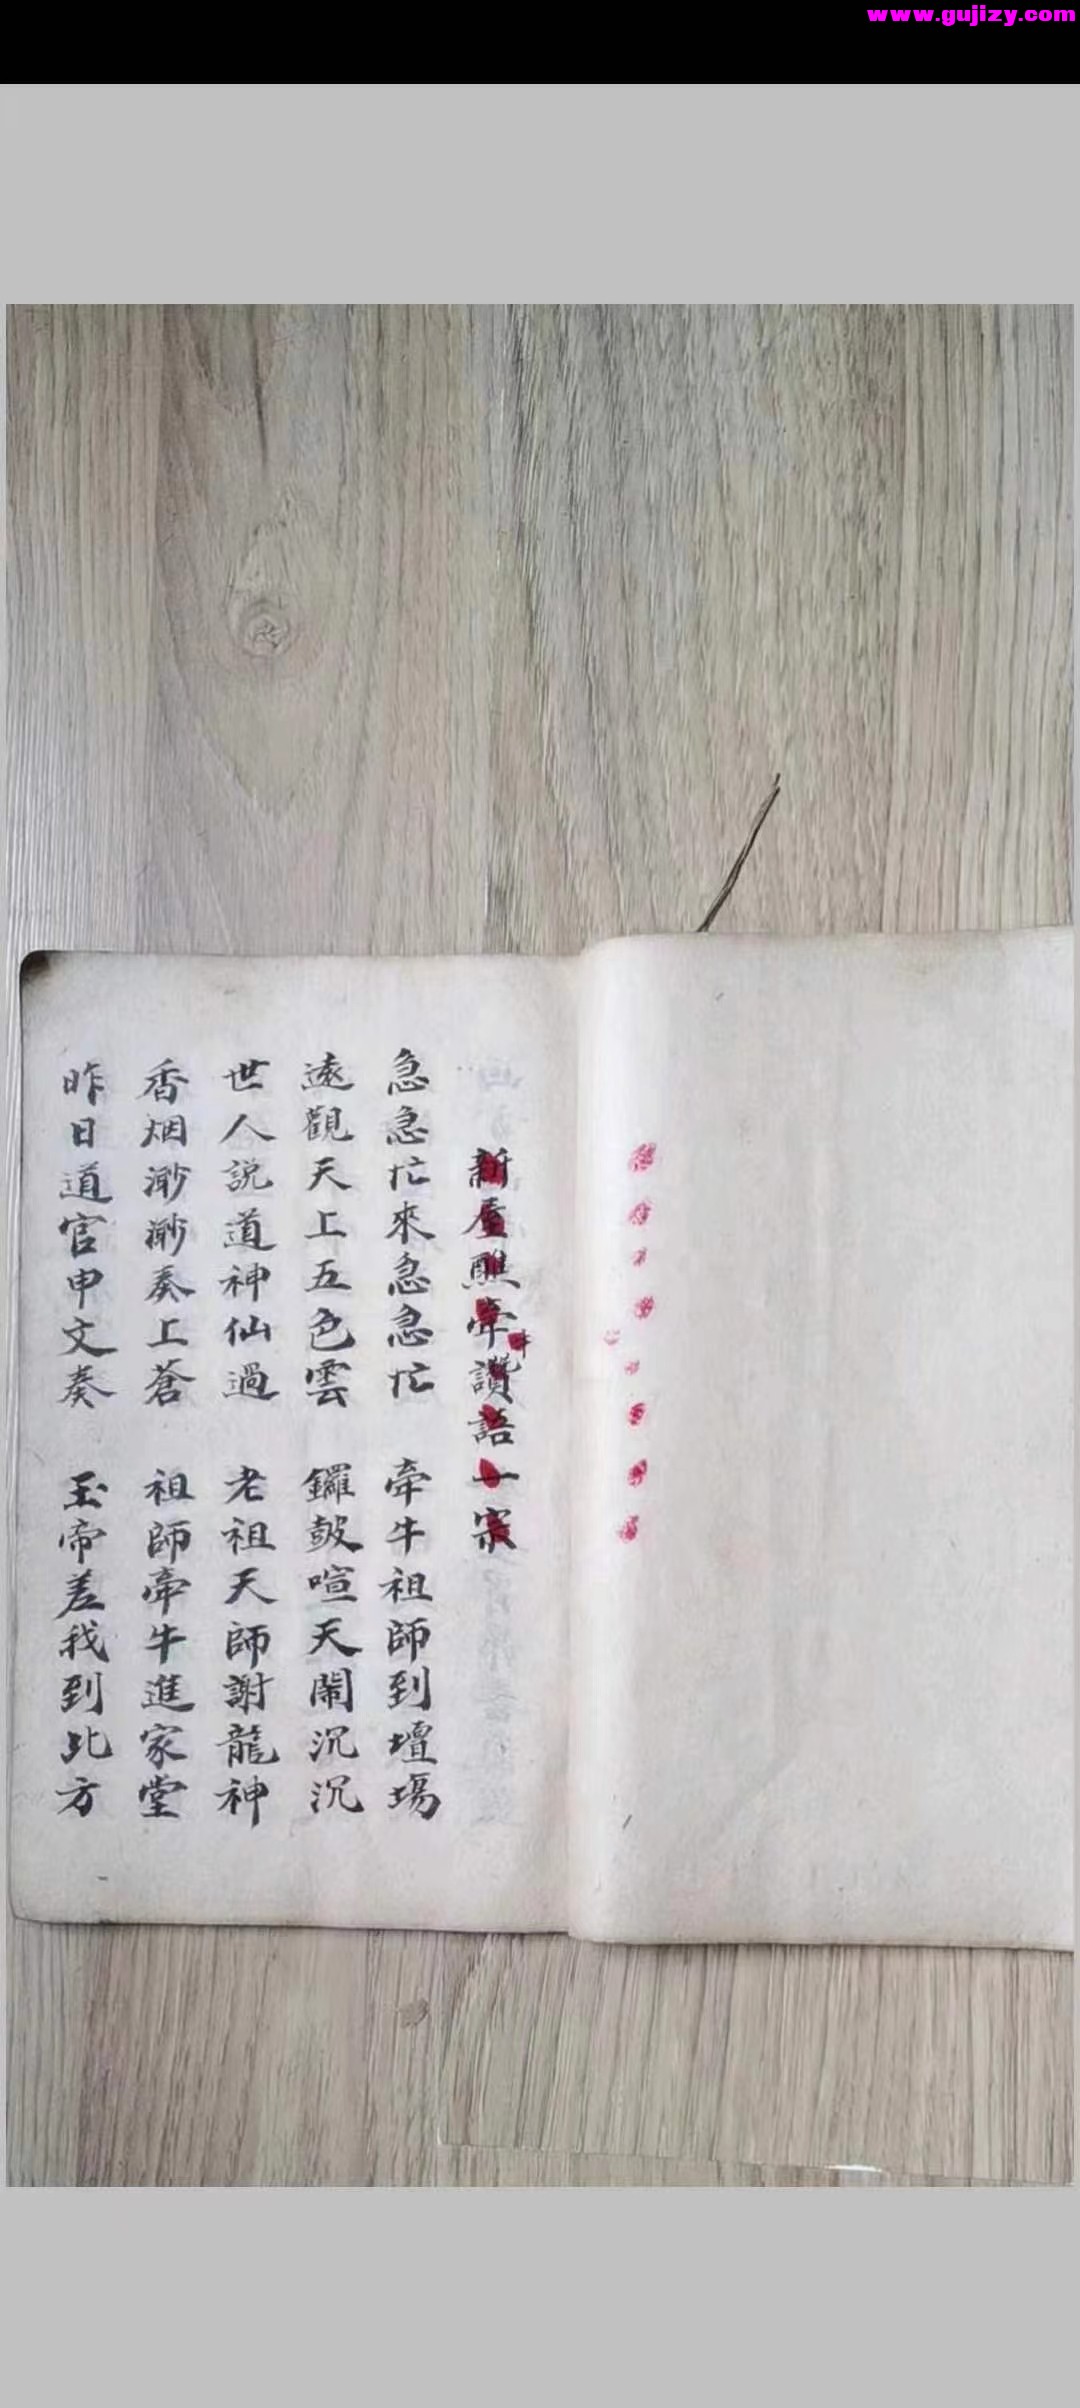 www.gujizy.com
新屋醮牽牛讚語一宗
急急忙來急急忙 牽牛祖師到壇場
遠觀天上五色雲 鑼鼓喧天鬧沉沉
世人説道神仙過 老祖天師謝龍神
香烟渺渺奏上蒼 祖師牽牛進家堂
昨日道官申文奏 玉帝差我到此方